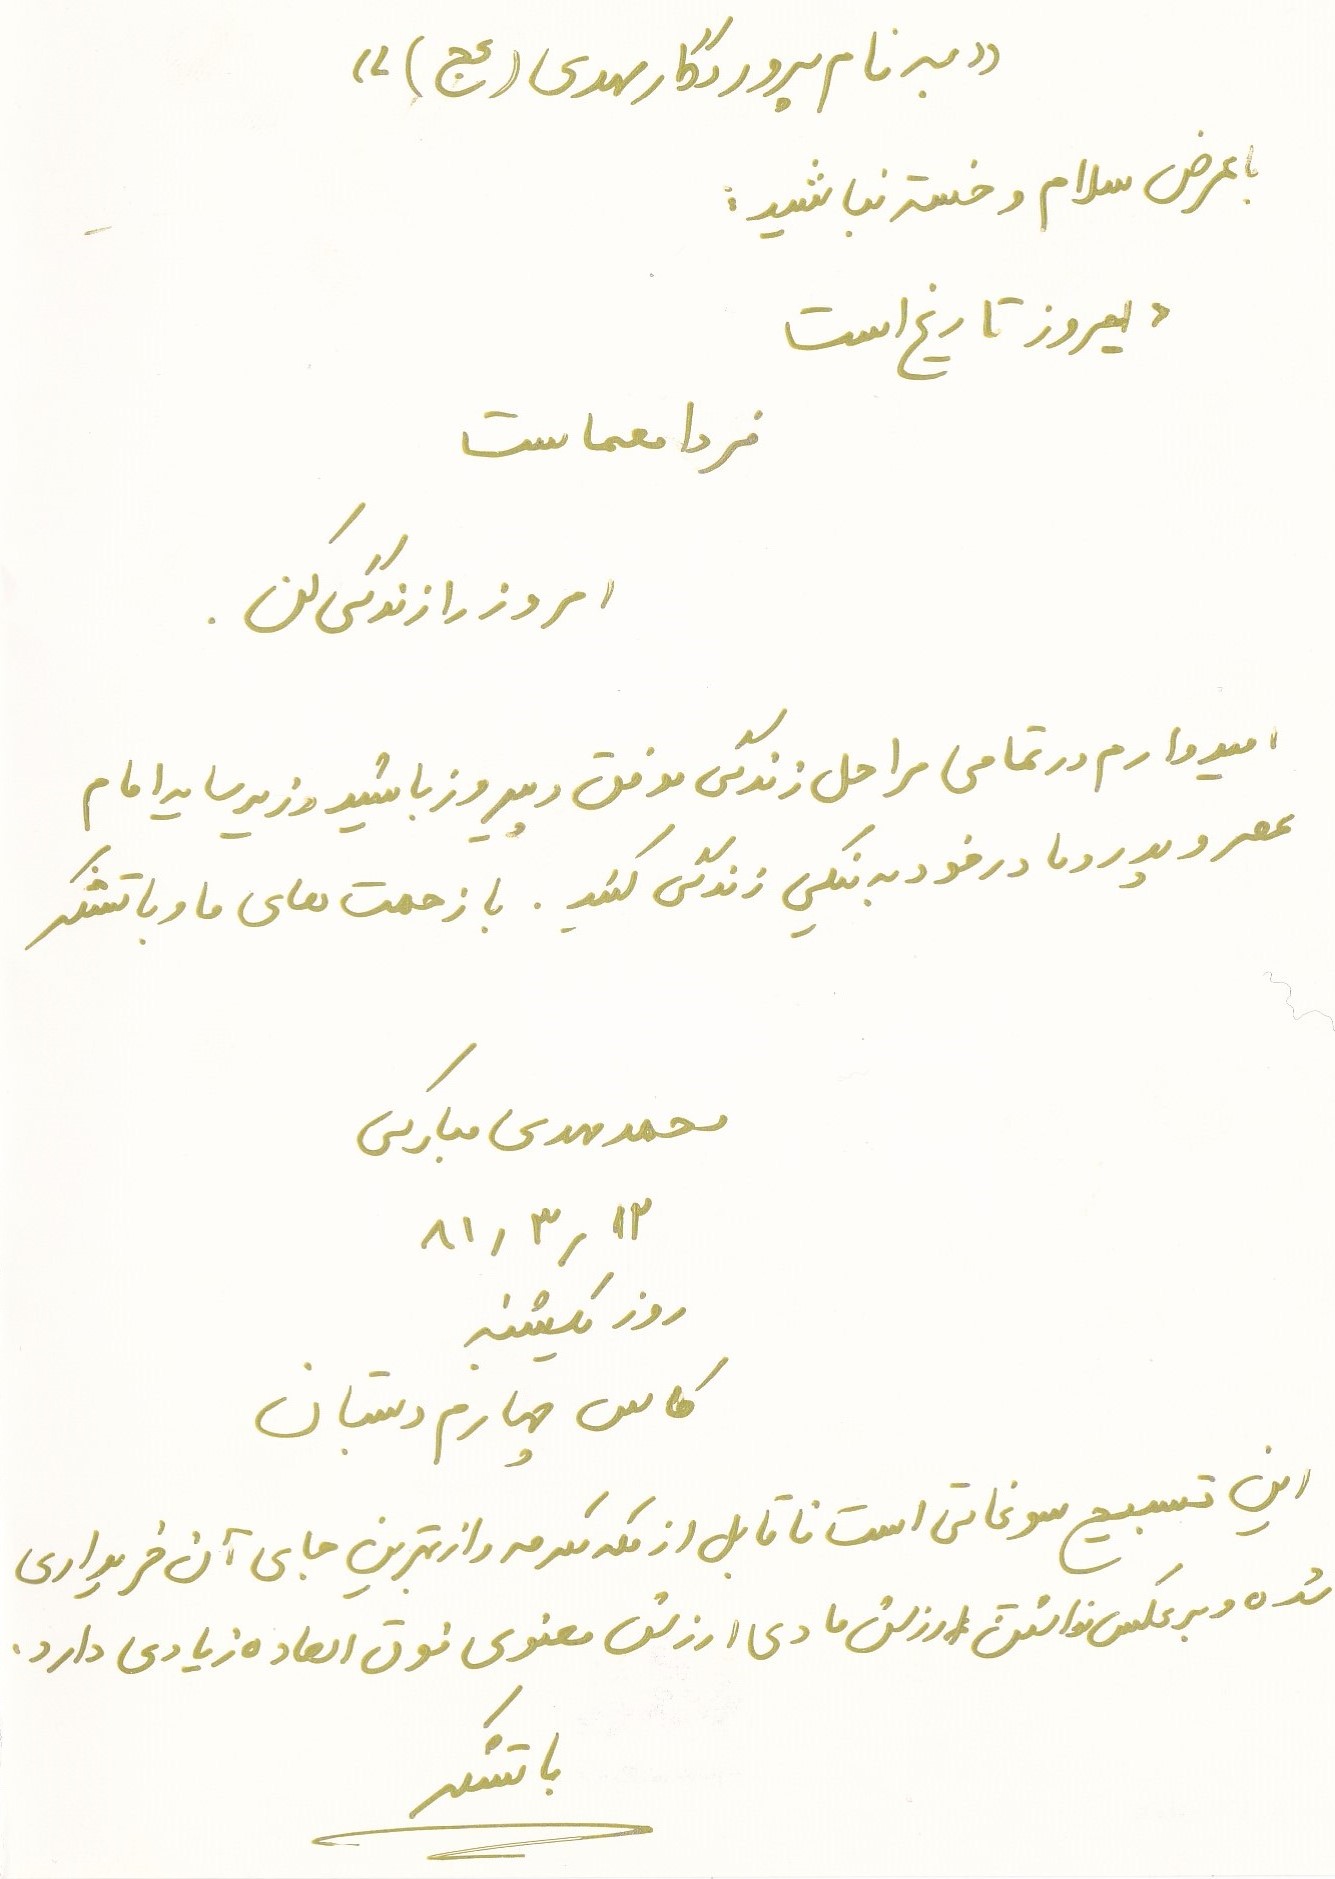 «به نام پروردگار مهدی (عج)»
با عرض سلام و خسته نباشید:
دیروز تاریخ است
فردا معماست
امروز را زندگی کن .
امیدوارم در تمامی مراحل زندگی موفق و پیروز باشید و زیر سایه امام
عصر و پدر و مادر خود به نیکی زندگی کنید . با زحمت های ما و با تشکر
محمد مهدی مبارکی
۱۲ / ۳ / ۸۱
روز یکشنبه
کلاس چهارم دبستان
این تسبیح سوغاتی است ناقابل از مکه مکرمه و از بهترین جای آن خریداری
شده و برعکس نداشتن ارزش مادی ارزش معنوی فوق العاده زیادی دارد.
با تشکر